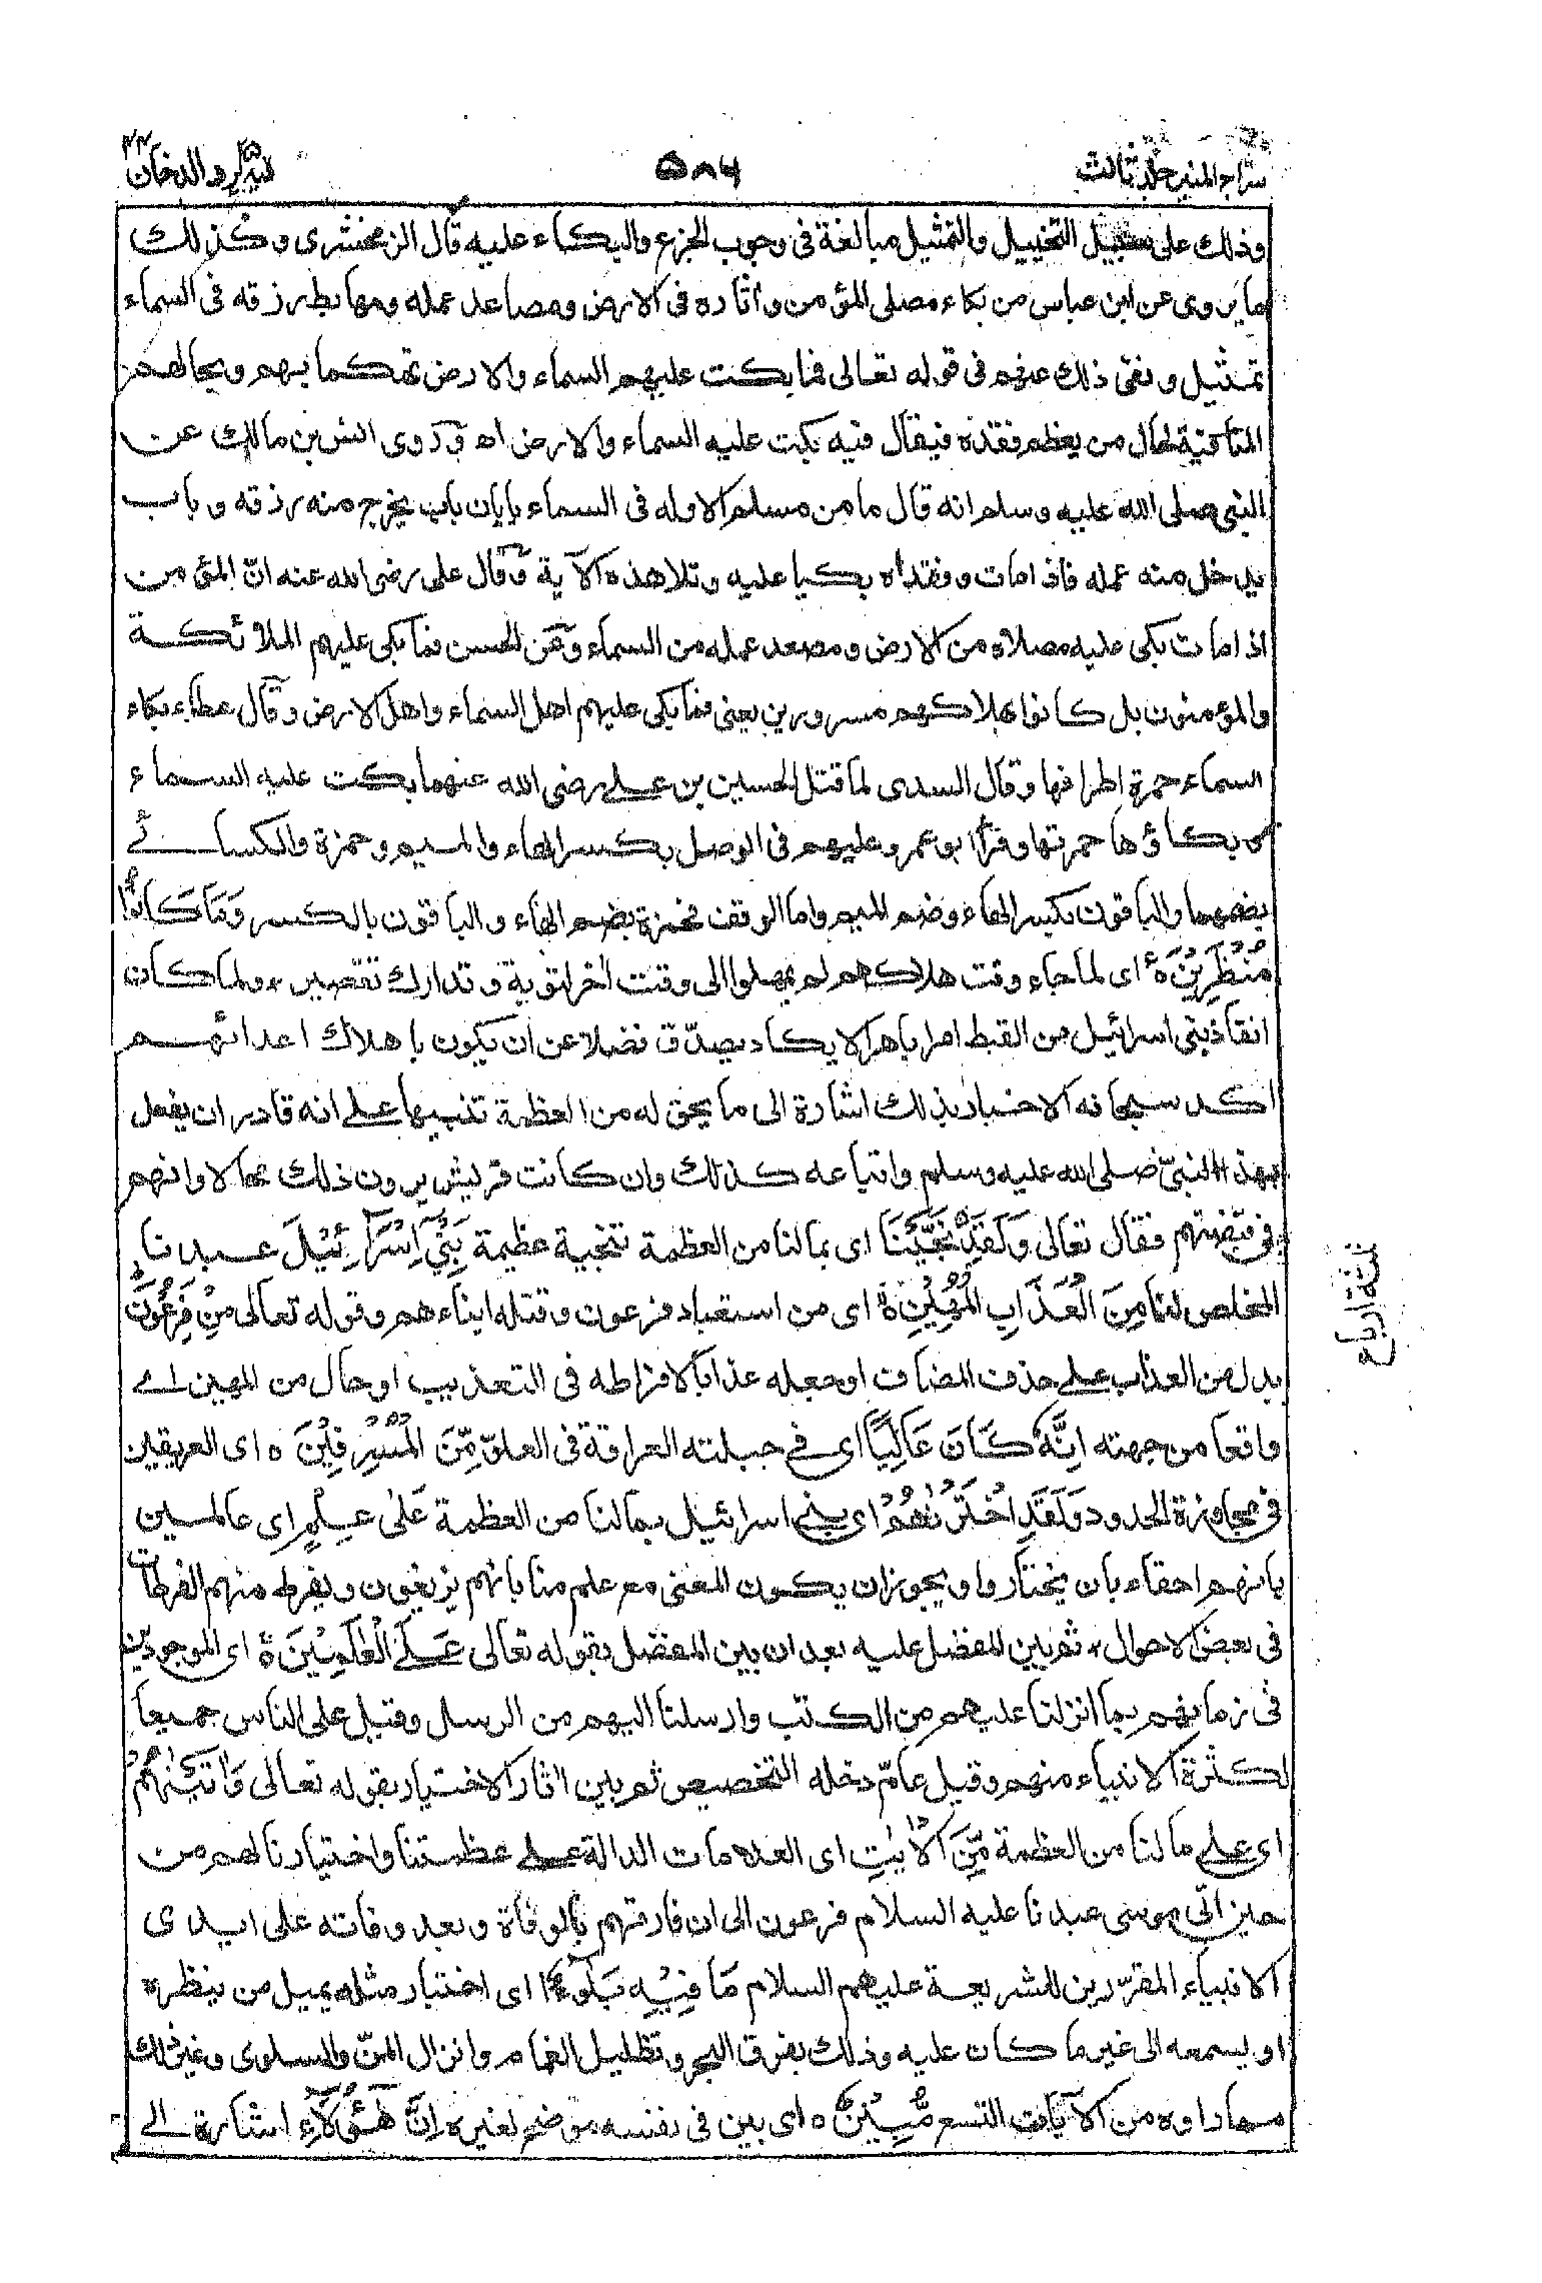 سراج المنير جلد ثالث
۵۸۶
اليه يرد الدخان ۴۴
وذلك على سبيل التخييل والتمثيل مبالغة في وجوب الجزع والبكاء عليه قال الزمخشري وكذلك
ما يروى عن ابن عباس من بكاء مصلى المؤمن وآثاره في الارض ومصاعد عمله ومهابط رزقه في السماء
تمثيل ونفى ذلك عنهم في قوله تعالى فما بكت عليهم السماء والارض تهكما بهم وبحالهم
المنافية لحال من يعظم فقده فيقال فيه بكت عليه السماء والارض اه وروى انس بن مالك عن
النبي صلى الله عليه وسلم انه قال ما من مسلم الا وله في السماء بابان باب يخرج منه رزقه وباب
يدخل منه عمله فاذا مات وفقداه بكيا عليه وتلا هذه الآية وقال على رضى الله عنه انّ المؤمن
اذا مات بكى عليه مصلاه من الارض ومصعد عمله من السماء وعن الحسن فما بكى عليهم الملائكة
والمؤمنون بل كانوا بهلاكهم مسرورين يعنى فما بكى عليهم اهل السماء واهل الارض وقال عطاء بكاء
السماء حمرة اطرافها وقال السدى لما قتل الحسين بن على رضى الله عنهما بكت عليه السماء
وبكاؤها حمرتها وقرأ ابو عمرو عليهم في الوصل بكسر الهاء والميم وحمزة والكسائى
بضمهما والباقون بكسر الهاء وضم الميم واما الوقف فحمزة بضم الهاء والباقون بالكسر وَمَا كَانُوْا
مُنْظَرِيْنَ ه اى لما جاء وقت هلاكهم لم يمهلوا الى وقت آخر لتوبة وتدارك تقصير ولما كان
انقاذ بنى اسرائيل من القبط امرا باهرا لا يكاد يصدّق فضلا عن ان يكون باهلاك اعدائهم
اكد سبحانه الاخبار بذلك اشارة الى ما يحق له من العظمة تنبيها على انه قادر ان يفعل
بهذا النبيّ صلى الله عليه وسلم واتباعه كذلك وان كانت قريش يرون ذلك محالا وانهم
في قبضتهم فقال تعالى وَلَقَدْ نَجَّيْنَا اى بما لنا من العظمة تنجية عظيمة بَنِيْ اِسْرَآئِيْلَ عبدنا
المخلص لنا مِنَ الْعَذَابِ الْمُهِيْنِ ه اى من استعباد فرعون وقتله ابناءهم وقوله تعالى مِنْ فِرْعَوْنَ
بدل من العذاب على حذف المضاف او جعله عذابا لافراطه في التعذيب او حال من المهين اى
واقعا من جهته اِنَّهٗ كَانَ عَالِيًا اى في جبلته العراقة في العلوّ مِّنَ الْمُسْرِفِيْنَ ه اى العريقين
في مجاوزة الحدود وَلَقَدِ اخْتَرْنٰهُمْ اى بنى اسرائيل بما لنا من العظمة عَلٰى عِلْمٍ اى عالمين
بانهم احقاء بان يختاروا ويجوز ان يكون المعنى مع علم منا بانهم يزيغون ويفرط منهم الفرطات
في بعض الاحوال ثم بين المفضل عليه بعد ان بين المفضل بقوله تعالى عَلَى الْعٰلَمِيْنَ ه اى الموجودين
في زمانهم بما انزلنا عليهم من الكتب وارسلنا اليهم من الرسل وقيل على الناس جميعا
لكثرة الانبياء منهم وقيل عامّ دخله التخصيص ثم بين آثار الاختيار بقوله تعالى وَاٰتَيْنٰهُمْ
اى على ما لنا من العظمة مِّنَ الْاٰيٰتِ اى العلامات الدالة على عظمتنا واختيارنا لهم من
حين اتى موسى عبدنا عليه السلام فرعون الى ان فارقهم بالوفاة وبعد وفاته على ايدى
الانبياء المقرّرين للشريعة عليهم السلام مَا فِيْهِ بَلٰٓؤٌا اى اختبار مثله يميل من ينظره
او يسمعه الى غير ما كان عليه وذلك بفرق البحر وتظليل الغمام وانزال المنّ والسلوى وغير ذلك
مما راوه من الآيات التسع مُّبِيْنٌ ه اى بين في نفسه موضح لغيره اِنَّ هٰٓؤُلَآءِ اشارة الى
ثلثة ارباع